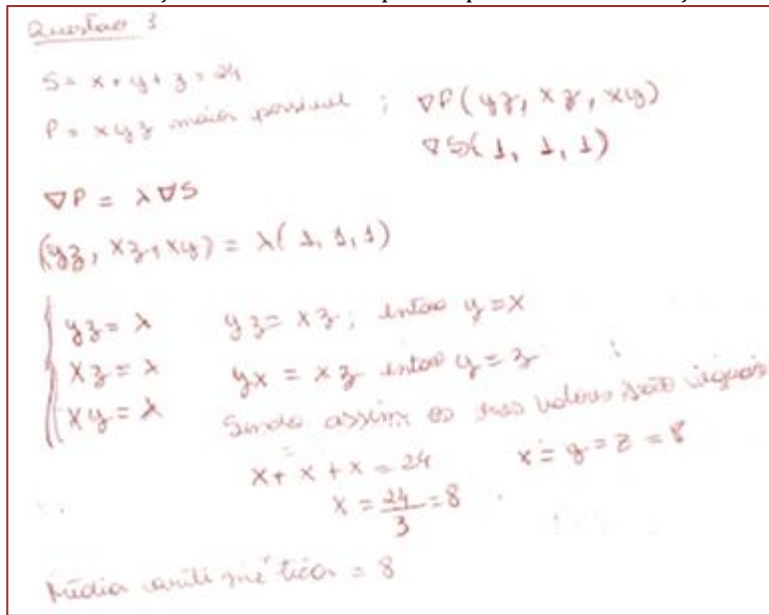 Questão 3
S = x + y + z = 24
P = xyz maior possível ; ∇P(yz, xz, xy)
∇S(1, 1, 1)
∇P = λ∇S
(yz, xz, xy) = λ(1, 1, 1)
yz = λ yz = xz; então y = x
xz = λ yx = xz então y = z
xy = λ Sendo assim, os três valores são iguais
x + x + x = 24 x = y = z = 8
x = 24/3 = 8
Média aritimética = 8